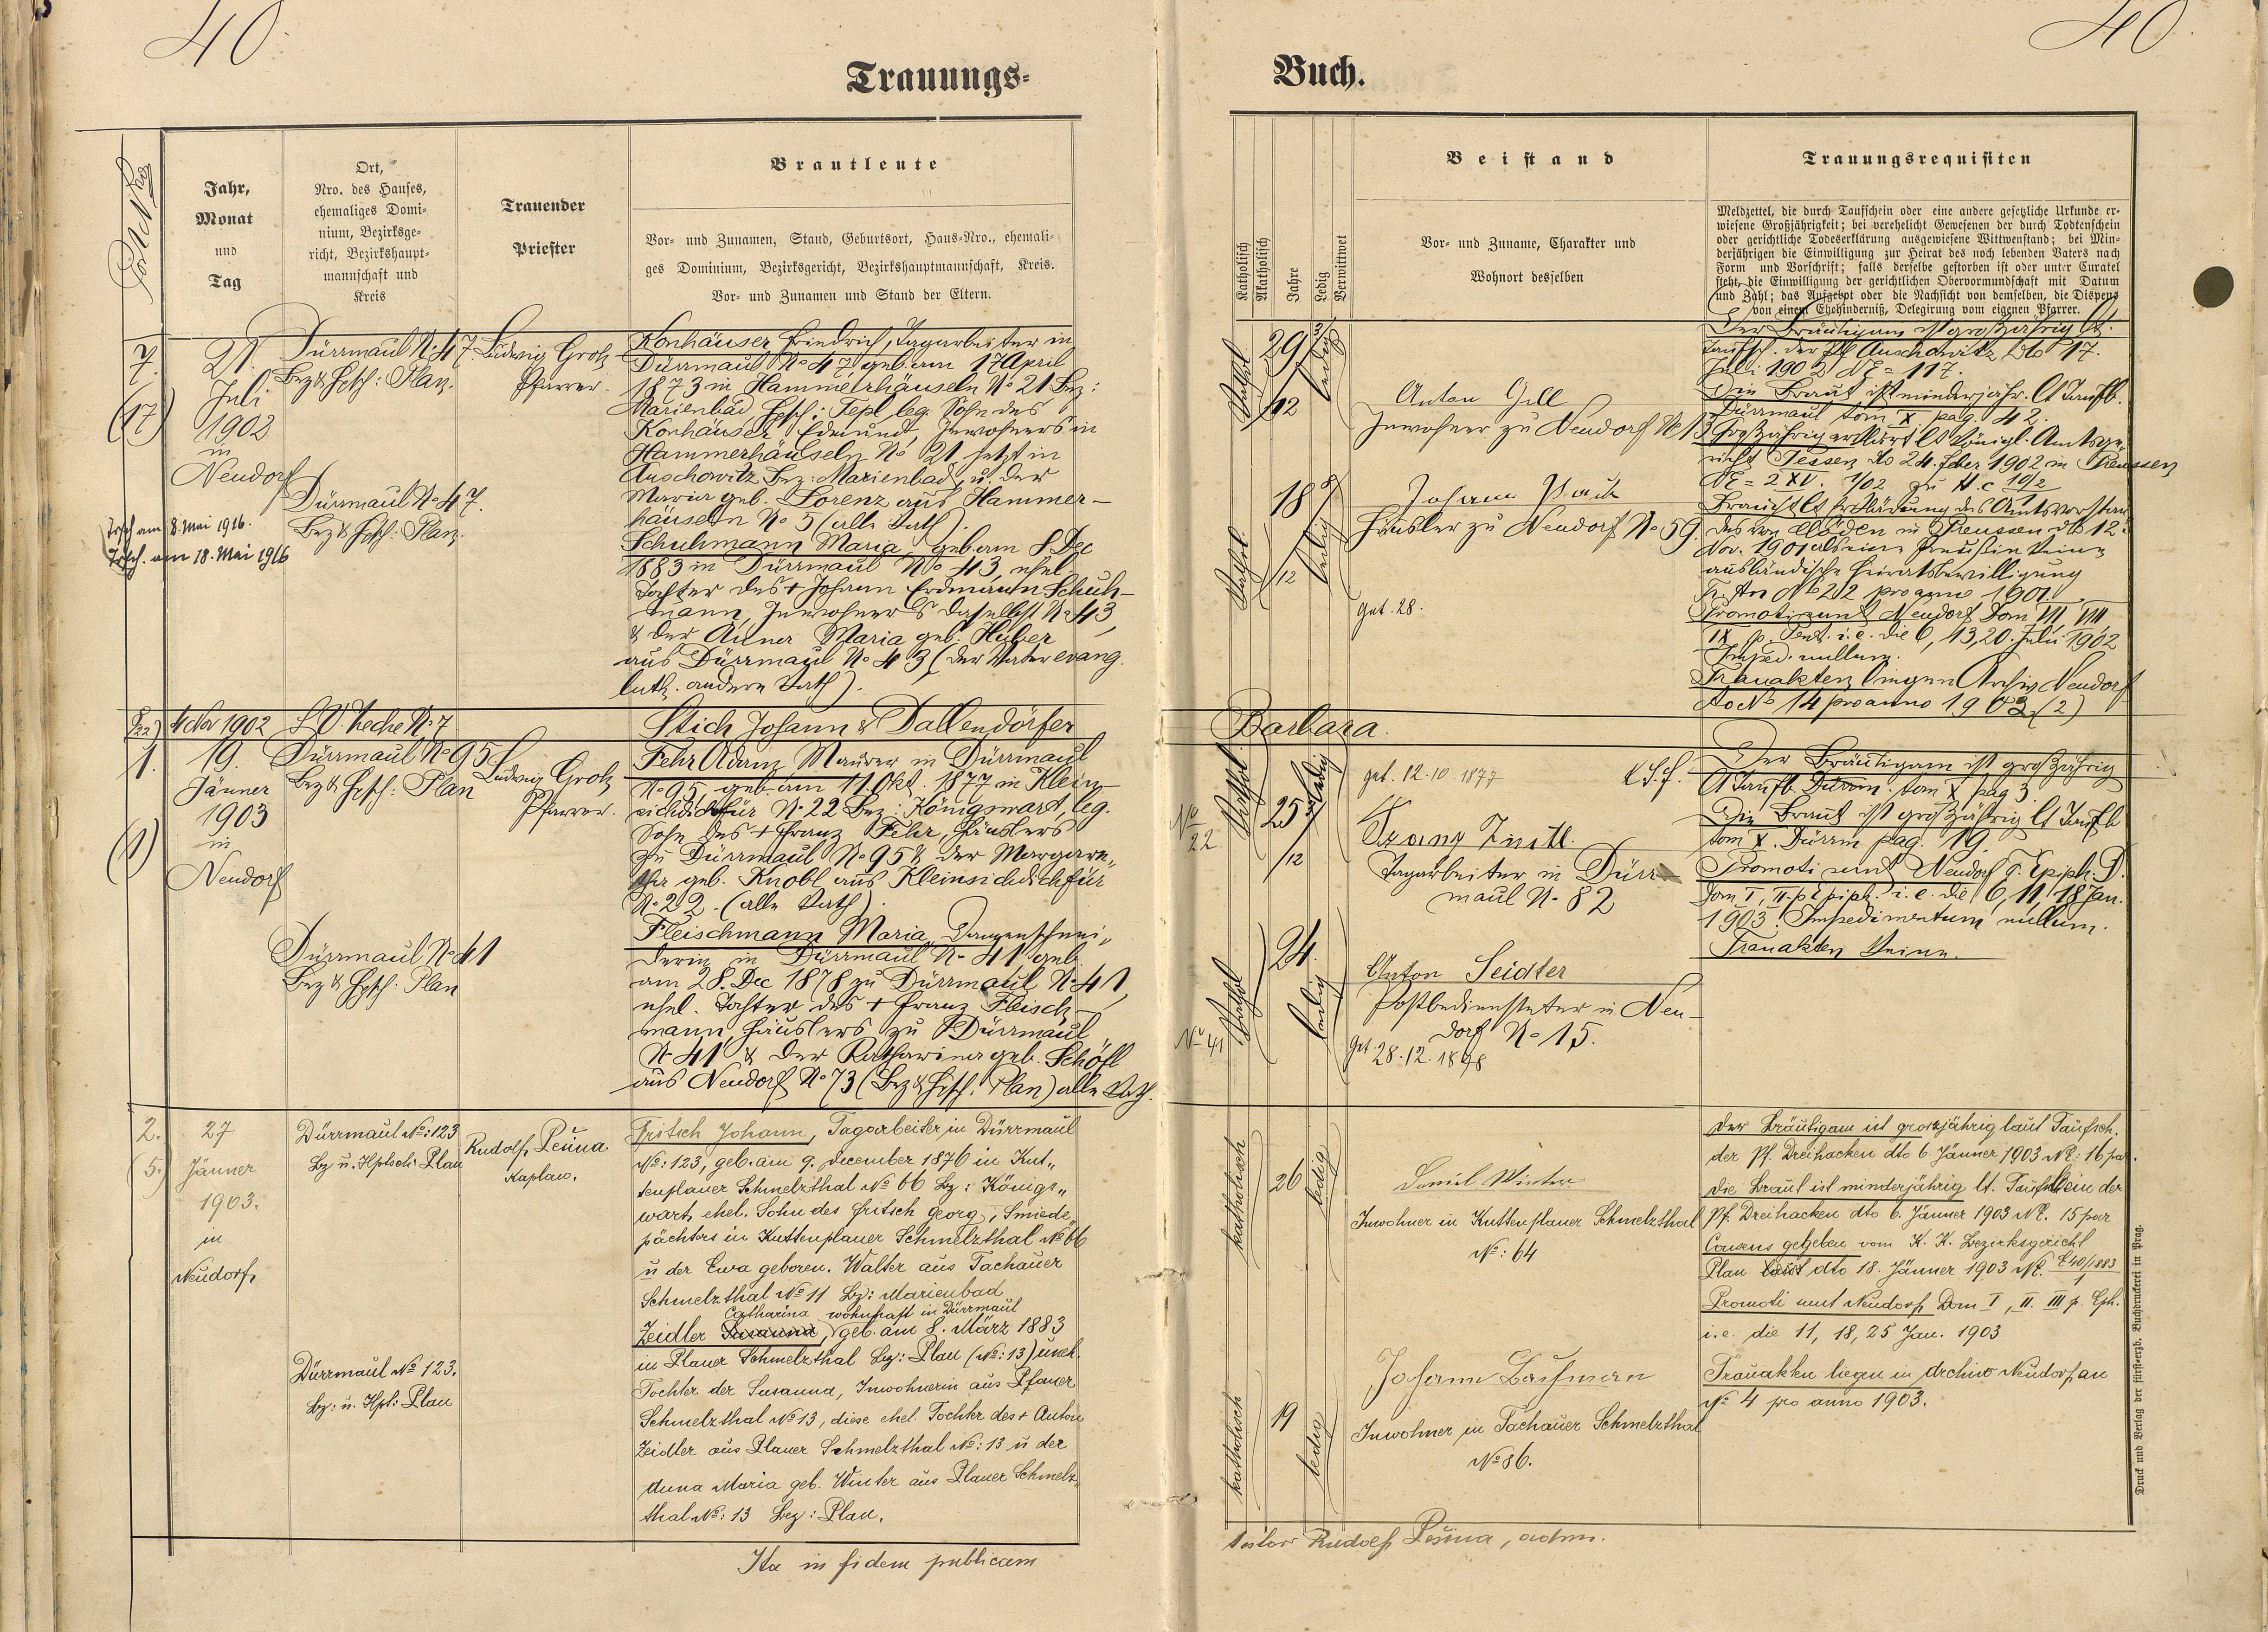 40.
40.
Trauungs-
Buch.
Post Nro
Jahr,
Monat
und
Tag
Ort,
Nro. des Hauses,
ehemaliges Domi-
nium, Bezirksge-
richt, Bezirkshaupt-
mannschaft und
Kreis
Trauender
Priester
Brautleute
Vor- und Zunamen, Stand, Geburtsort, Haus-Nro., ehemali-
ges Dominium, Bezirksgericht, Bezirkshauptmannschaft, Kreis.
Vor- und Zunamen und Stand der Eltern.
Katholisch
Akatholisch
Jahre
Ledig
Verwittwet
Beistand
Vor- und Zuname, Charakter und
Wohnort desselben
Trauungsrequisiten
Meldzettel, die durch Taufschein oder eine andere gesetzliche Urkunde er-
wiesene Großjährigkeit; bei verehelicht Gewesenen der durch Todtenschein
oder gerichtliche Todeserklärung ausgewiesene Wittwenstand; bei Min-
derjährigen die Einwilligung zur Heirat des noch lebenden Vaters nach
Form und Vorschrift; falls derselbe gestorben ist oder unter Curatel
steht, die Einwilligung der gerichtlichen Obervormundschaft mit Datum
und Zahl; das Aufgebot oder die Nachsicht von demselben, die Dispens
von einem Ehehinderniß, Delegirung vom eigenen Pfarrer.
7.
(17)
21.
Juli
1902
in
Neudorf
Dürrmaul No 47.
Bez & Hptsch: Plan.
Ludwig Grotz
Pfarrer.
Dürrmaul No 47.
Bez & Hptsch: Plan.
Trsch am 8. Mai 1916.
Trsch. am 18. Mai 1916
Konhäuser Friedrich, Tagarbeiter in
Dürrmaul No 47 geb. am 17 April
1873 in Hammerhäuseln No 21 Bez:
Marienbad Hptsch: Tepl leg. Sohn des
Konhäuser Edmund, Inwohners in
Hammerhäuseln No 21 jetzt in
Auschowitz Bez: Marienbad, u. der
Maria geb. Lorenz aus Hammer-
häuseln No 5 (alle kath).
Schuhmann Maria, geb. am 8. Dec
1883 in Dürrmaul No 43, ehel.
Tochter des + Johann Erdmann Schuh-
mann, Inwohners daselbst No 43,
& der Anna Maria geb. Huber
aus Dürrmaul No 43 (der Vater evang.
luth. andere kath).
29 3/12
ledig
Anton Gell
Inwohner zu Neudorf No 13
18 /12
ledig
Johann
Häusler zu Neudorf No 59.
get. 28.
Der Bräutigam ist großjährig lt.
Taufsch. der Pf. Auschowitz dto 17.
Juli 1902 NE = 117.
Die Braut ist minderjähr. lt Taufb.
Dürrmaul tom X pag. 42.
Großjährig erklärt lt königl. Amtsge-
richt dto 24. Feber 1902 in Preussen
Braucht lt Erklärung des Amtsvorstan-
des von in Preussen dto 12.
Nov. 1901 als eine Preußin keine
ausländische Heiratsbewilligung
No 212 pro anno 1901.
Promoti sunt Neudorf Dom VII, VIII,
IX p. Pent. i. e. die 6, 13, 20. Juli 1902
Imped. nullum.
Trauakten liegen Archiv Neudorf
No 14 pro anno 1902 (2)
4 Nov 1902
No 7
Stich Johann & Dallendörfer
Barbara.
1.
(1)
19.
Jänner
1903
in
Neudorf
Dürrmaul No 95
Bez & Hptsch: Plan
Ludwig Grotz
Pfarrer.
Dürrmaul No 41
Bez & Hptsch: Plan
Fehr Adam Maurer in Dürrmaul
No 95, geb. am 11. Okt. 1877 in Klein-
sichdichfür No 22 Bez: Königswart, leg.
Sohn des + Franz Fehr, Häuslers
zu Dürrmaul No 95 & der Margare-
tha geb. Knobl aus Kleinsichdichfür
No 22. (alle kath).
Fleischmann Maria,
derin in Dürrmaul No 41 geb.
am 28. Dec 1878 zu Dürrmaul No 41,
ehel. Tochter des + Franz Fleisch-
mann, Häuslers zu Dürrmaul
No 41 & der Katharina geb. Schöfl
aus Neudorf No 73 (Bez & Hptsch. Plan) alle kath.
No 22
25 3/12
ledig
get. 12.10.1877
Franz
Tagarbeiter in Dürr-
maul No 82
No 41
24.
ledig
Anton Seidler
Postbediensteter in Neu-
dorf No 15.
Get. 28.12.1878
Der Bräutigam ist großjährig
lt Taufb. Dürrm. tom X pag 3.
Die Braut ist großjährig lt Taufb
tom X. Dürrm pag. 19.
Promoti sunt Neudorf F. Epiph. D.
Dom I, II. p. Epiph. i. e. die 6, 11, 18 Jan.
1903. Impedimentum nullum.
Trauakten keine.
2.
(5.)
27
Jänner
1903.
in
Neudorf
Dürrmaul No: 123
Bz u. Hptsch: Plan
Rudolf Pešina
Kaplan.
Dürrmaul No 123.
Bz: u. Hpt: Plan
Fritsch Johann, Tagarbeiter in Dürrmaul
No: 123, geb. am 9. December 1876 in Kut-
tenplaner Schmelzthal No 66 Bz: Königs-
wart, ehel. Sohn des Fritsch Georg, Smiede-
pächters in Kuttenplaner Schmelzthal No 66
u der Eva geboren. Walter aus Tachauer
Schmelzthal No 11 Bz: Marienbad
Catharina wohnhaft in Dürrmaul
Zeidler Susanna, geb. am 8. März 1883
in Planer Schmelzthal Bz: Plan (No: 13) uneh.
Tochter der Susanna, Inwohnerin aus Planer
Schmelzthal No 13, diese ehel. Tochter des + Anton
Zeidler aus Planer Schmelzthal No: 13 u der
Anna Maria geb. Winter aus Planer Schmelz-
thal No: 13 Bez: Plan.
katholisch
26
ledig
Daniel Winter
Inwohner in Kuttenplaner Schmelzthal
No: 64
katholisch
19
ledig
Johann
Inwohner in Tachauer Schmelzthal
No 86.
Der Bräutigam ist grossjährig laut Taufsch.
der Pf. Dreihacken dto 6. Jänner 1903 NE: 16 par.
Die Braut ist minderjährig lt. Taufschein der
Pf. Dreihacken dto 6. Jänner 1903 NE. 15 par
Consens gegeben vom K. K. Bezirksgericht
Plan dto 18. Jänner 1903
Promoti sunt Neudorf Dom I, II. III p. Eph.
i. e. die 11, 18, 25 Jan. 1903
Trauakten liegen in Archivo Neudorf an
No 4 pro anno 1903.
Ita in fidem publicam
testor Rudolf Pešina, adm.
Druck und Verlag der fürst-erzb. Buchdruckerei in Prag.